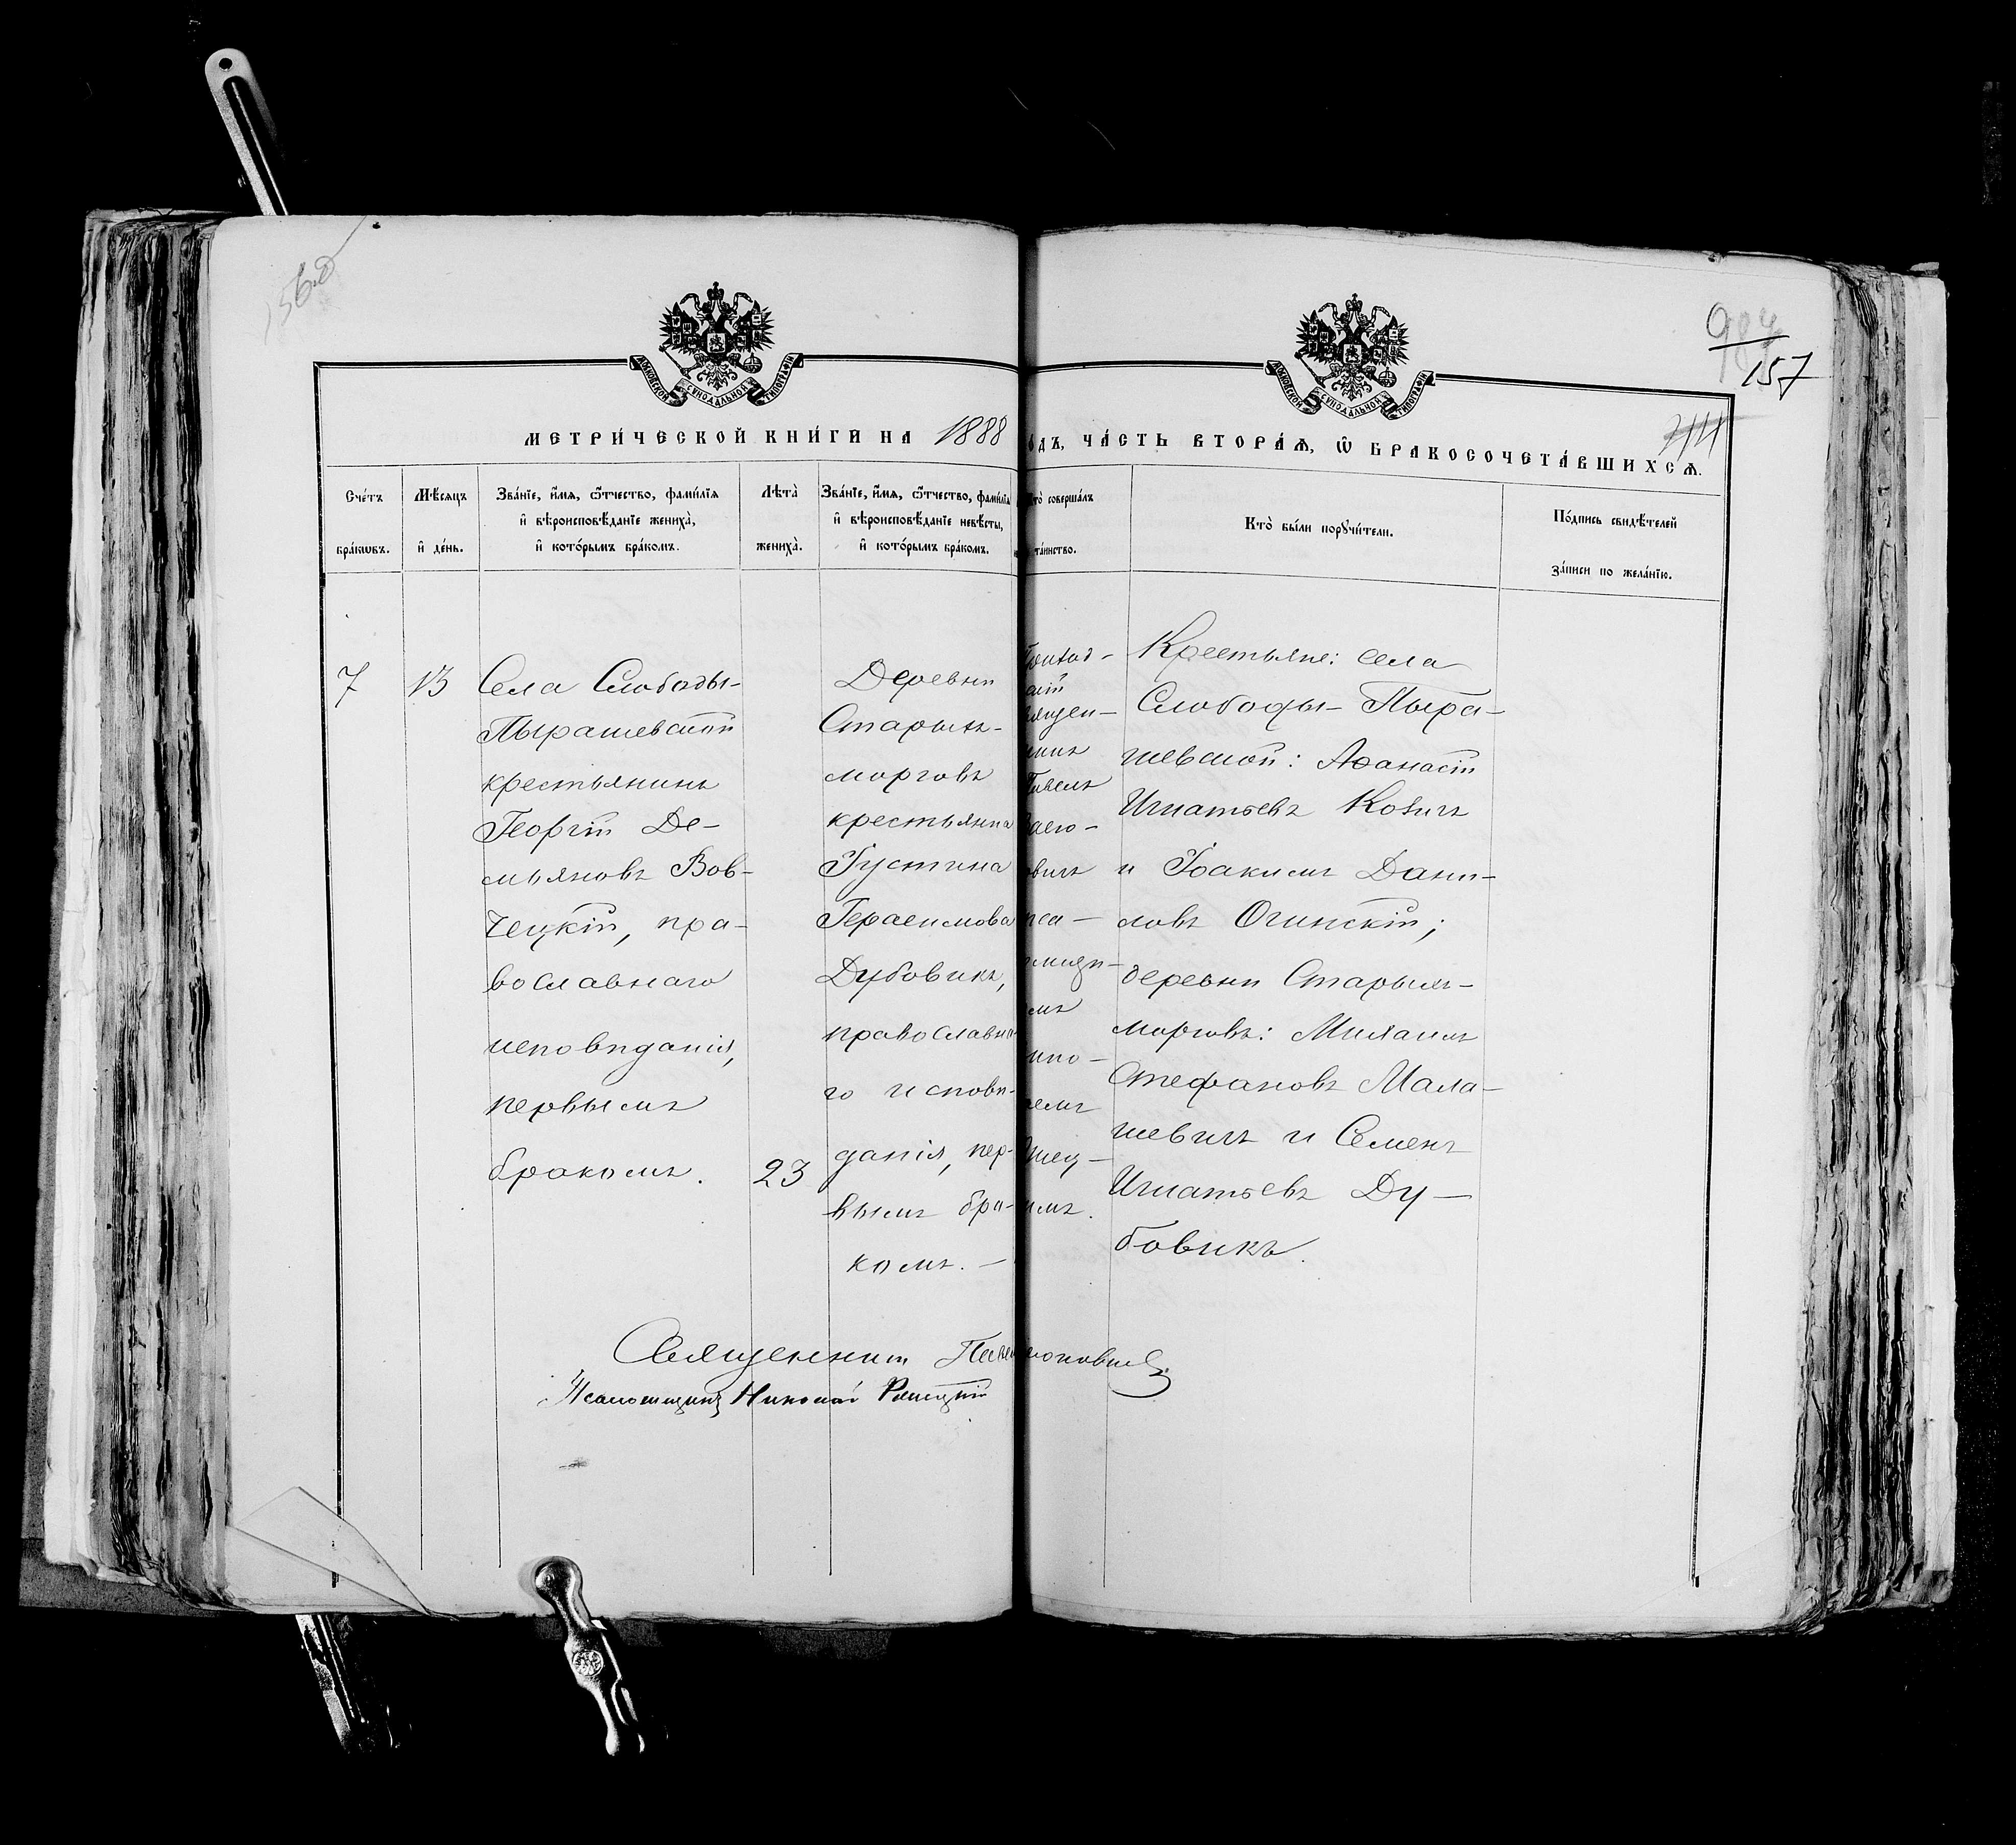 156.о
984
157
МОСКОВСКОЙ СѴНОДАЛЬНОЙ ТИПОГРАФІИ
МОСКОВСКОЙ СѴНОДАЛЬНОЙ ТИПОГРАФІИ
МЕТРИ́ЧЕСКОЙ КНИ́ГИ НА 1888
о́дъ, ЧА́СТЬ ВТОРА́Ѧ, Ѽ БРАКОСОЧЕТА́ВШИХСѦ.
Сче́тъ
бра́кѡвъ.
Мѣ́сѧцъ
и҆ де́нь.
Зва́нїе, и҆́мѧ, ѻ҆́тчество, фамѝлїѧ
и҆ вѣроисповѣ́данїе жениха̀,
и҆ кото́рымъ бра́комъ.
Лѣта̀
жениха̀.
Зва́нїе, и҆́мѧ, ѻ҆́тчество, фамѝлїѧ
и҆ вѣроисповѣ́данїе невѣ́сты,
и҆ кото́рымъ бра́комъ.
то̀ соверша́лъ
та́инство.
Кто̀ бы́ли порꙋчи́тели.
По́дпись свидѣ́телей
за́писи по жела́нїю.
7
13
Села Слободы-
Пырашевской
крестьянинъ
Георгій Де-
мьяновъ Вов-
чецкій, пра-
вославнаго
исповѣданія,
первымъ
бракомъ.
23
Деревни
Старыхъ-
морговъ
крестьянка
Іустина
Герасимова
Дубовикъ,
православна-
го исповѣ-
данія, пер-
вымъ бра-
комъ. —
Крестьяне: села
Слободы-Пыра-
шевской: Аѳанасій
Игнатьевъ Ковичъ
и Іоакимъ Дани-
ловъ Огинскій;
деревни Старыхъ-
морговъ: Михаилъ
Стефановъ Мала-
шевичъ и Семенъ
Игнатьевъ Ду-
бовикъ.
Священникъ
Псаломщикъ Николай